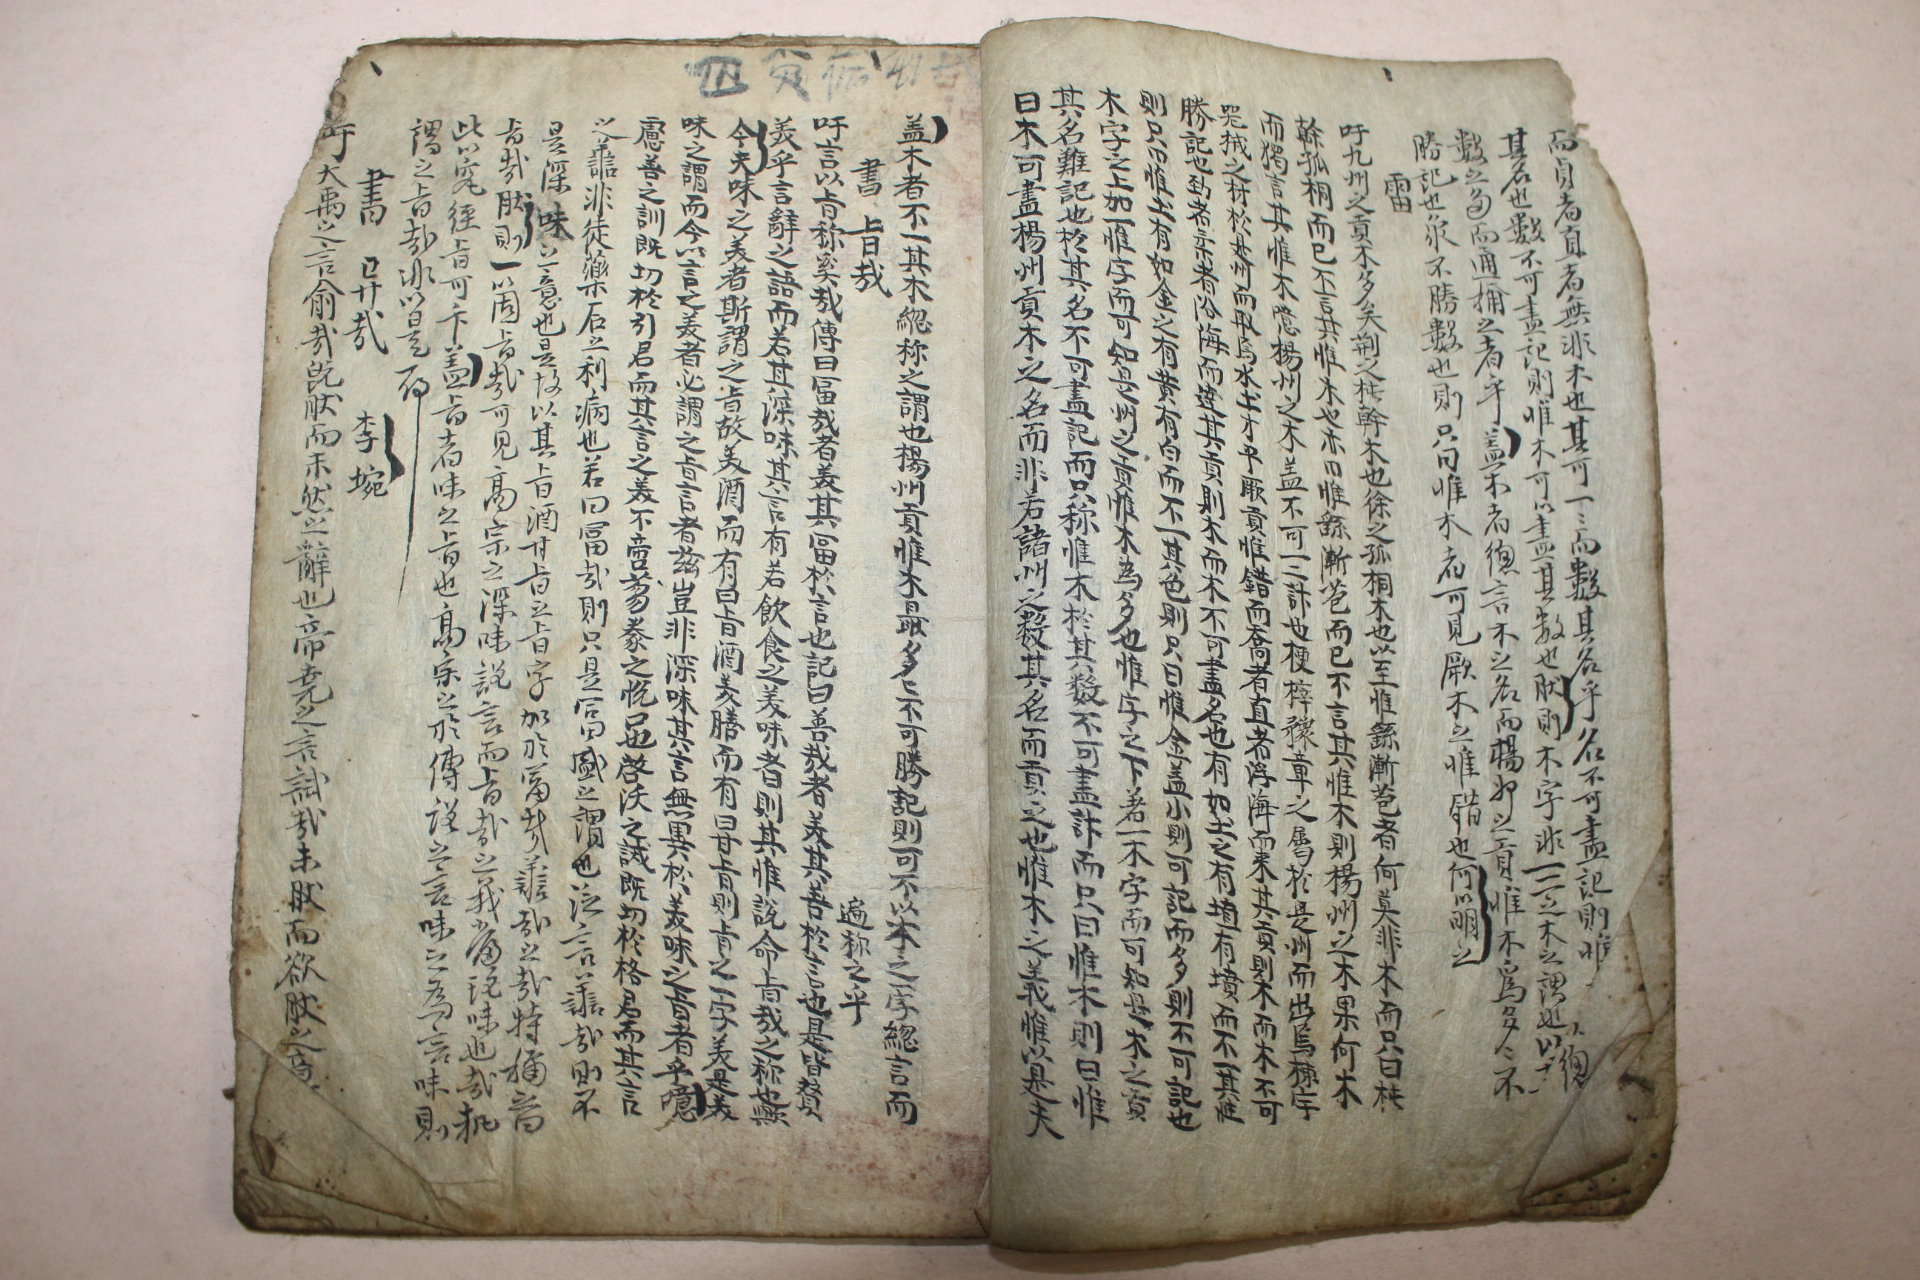 而貢者直者無非木也其可一二而數其名乎名不可盡記則惟
其名也數不可盡記則惟木可以盡其數也肰則木字非一二之木之謂也以
數之多而通稱之者乎盖木者總言木之名而楊州之貢惟木爲多多不
勝記也衆不勝數也則只曰惟木者可見厥木之惟錯也何以明之
雷
吁九州之貢木多矣荊之杶幹木也徐之孤桐木也以至惟繇漸苞者何莫非木而只曰杶
幹孤桐而已不言其惟木也亦曰惟繇漸苞而已不言其惟木則楊州之木果何木
而獨言其惟木噫楊州之木盖不可一二計也梗梓豫章之屬於是州而出焉極字
器械之材於是州而取焉水土才平厥貢惟錯而喬者直者浮海而來其貢則木而木不可
勝記也勁者柔者沿海而達其貢則木而木不可盡名也有如土之有埴有墳而不一其性
則只曰惟土有如金之有黃有白而不一其色則只曰惟金盖小則可記而多則不可記也
木字之上加一惟字而可知是州之貢惟木爲多也惟字之下著一木字而可知是木之貢
其名難記也於其名不可盡記而只称惟木於其數不可盡計而只曰惟木則曰惟
曰木可盡楊州貢木之名而非若諸州之數其名而貢之也惟木之義惟以是夫
盖木者不一其木總称之謂也楊州貢惟木最多多不可勝記則可不以木之一字總言而
遍称之乎
書 旨哉
吁言以旨称奚哉傳曰富哉者美其富於言也記曰善哉者美其善於言也是皆贊
美乎言辭之語而若其深味其言有若飲食之美味者則其惟說命旨哉之称也無
今夫味之美者斯謂之旨故美酒而有曰旨酒美膳而有曰甘旨則旨之一字美是美
味之謂而今以言之美者必謂之旨言者玆豈非深味其言無異於美味之旨者乎噫
慮善之訓既切於引君而其言之美不啻芻豢之悅口也啓沃之誠既切於格君而其言
之譱非徒藥石之利病也若曰富哉則只是富盛之謂也泛言譱哉則不
是深味之意也是故以其旨酒甘旨之旨字加於富哉譱哉之哉特稱旨
旨哉肰則一以固旨哉可見高宗之深味說言而旨哉之哉當玩味也哉
此以究經旨可乎盖旨者味之旨也高宗之於傅說之言味之爲言味則
謂之旨哉亦以是
書 已廿哉 李埦
吁大禹之言兪哉旣肰而未然之辭也帝堯之言試哉未肰而欲肰之意